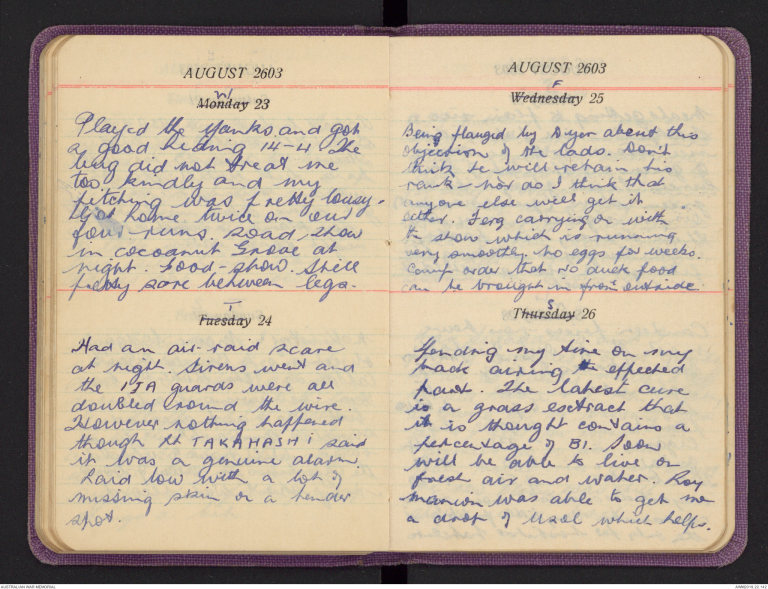 AUGUST 2603
W
Monday 23
Played the Yanks and got
a good hiding 14-4. The
bug did not treat me
too kindly and my
pitching was pretty lousy.
Got home twice on our
four runs. Road Show
in Cocoanut Grove at
night. Good show. Still
pretty sore between legs.
T
Tuesday 24
Had an air-raid scare
at night. Sirens went and
the IJA guards were all
doubled round the wire.
However nothing happened
though Lt TAKAHASHI said
it was a genuine alarm.
Laid low with a lot of
missing skin on a tender
spot.
AUGUST 2603
F
Wednesday 25
Being flanged by Dyer about this
objection of the lads. Don't
think he will retain his
rank - nor do I think that
anyone else will get it
either. Ferg carrying on with
the show which is running
very smoothly. No eggs for weeks.
Camp order that no duck food
can be brought in from outside.
S
Thursday 26
Spending my time on my
back airing the effected
part. The latest cure
is a grass extract that
it is thought contains a
percentage of B1. Soon
will be able to live on
fresh air and water. Roy
was able to get me
a drop of which helps.
AUSTRALIAN WAR MEMORIAL